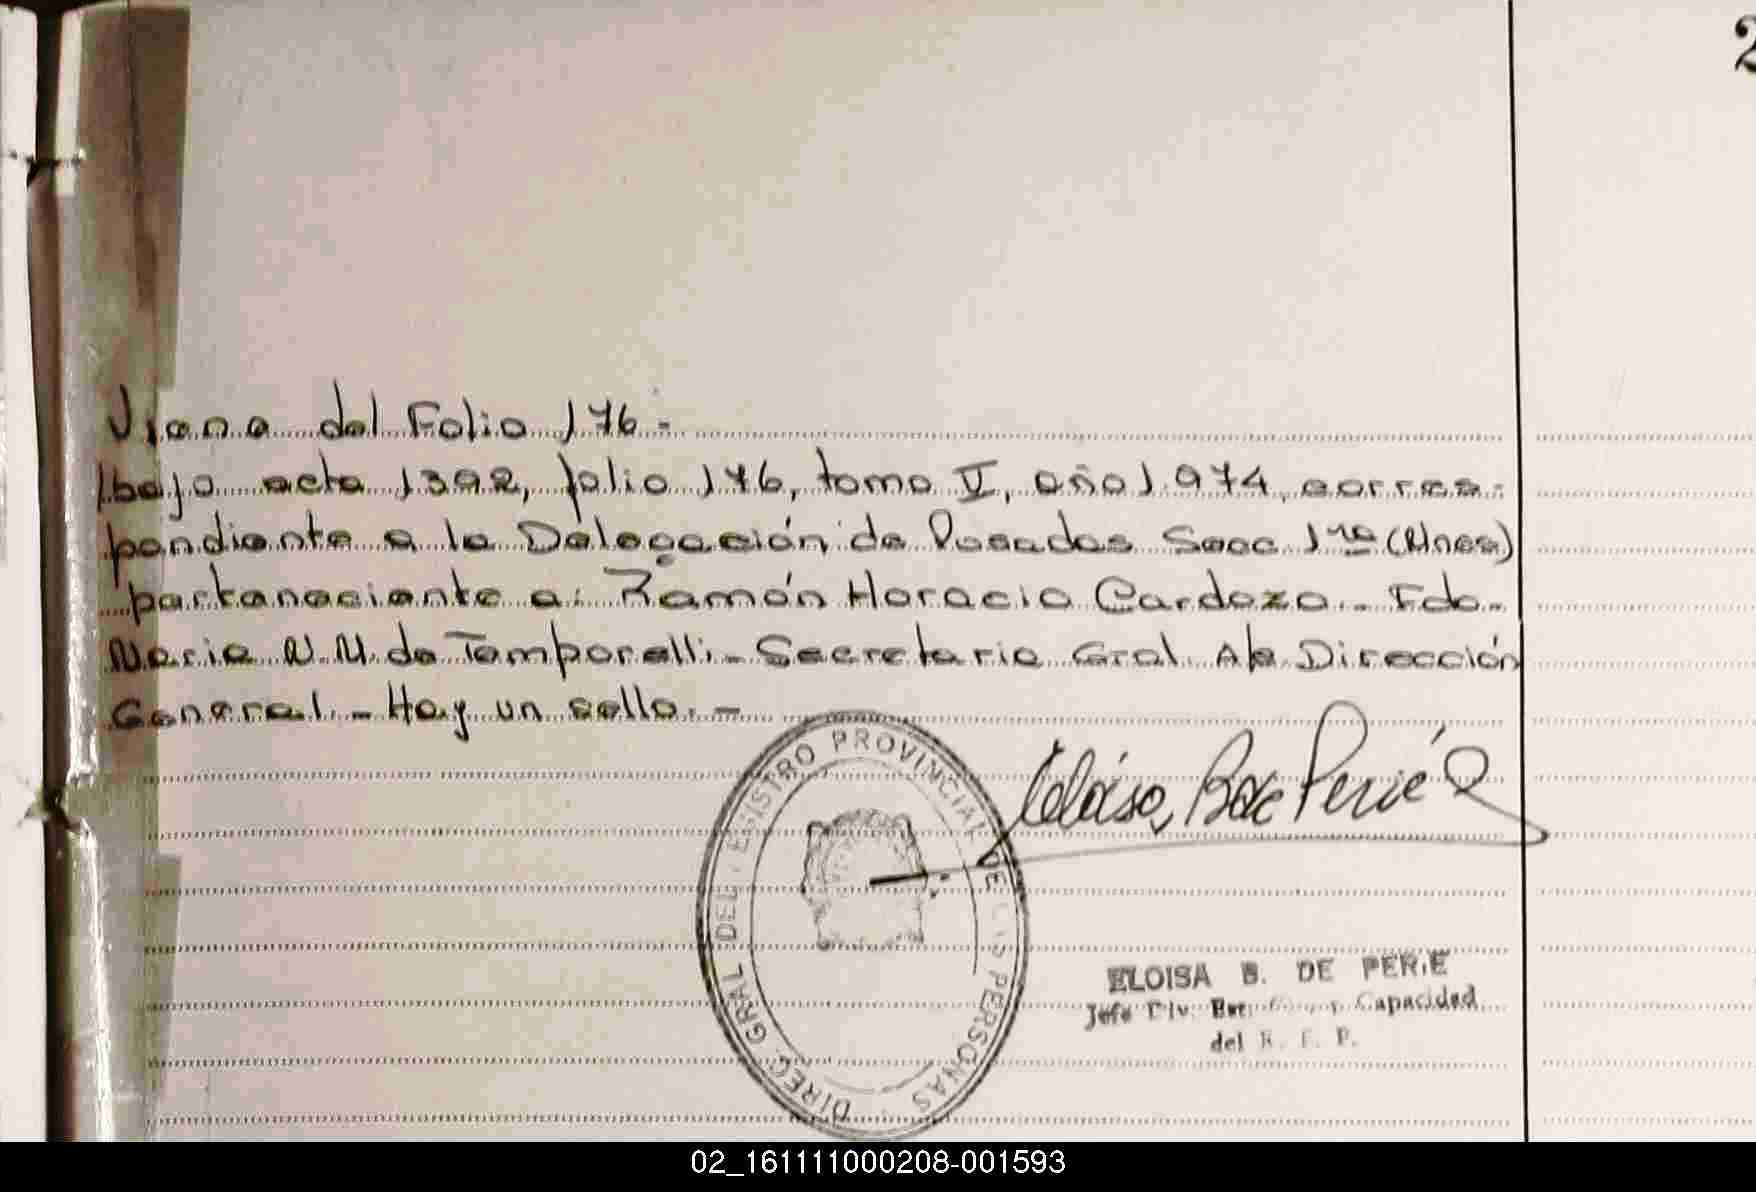 2
Viene del Folio 176.-
bajo acta 1392, folio 176, tomo V, año 1.974, corres-
pondiente a la Delegación de Posadas Secc 1ra (Mnes)
perteneciente a: Ramón Horacio Cardozo.- Fdo.
María N.N. de Temporelli.- Secretaria Gral. A/c Dirección
General.- Hay un sello.-
Eloisa B de Perié
DIREC. GRAL. DEL REGISTRO PROVINCIAL DE LAS PERSONAS
ELOISA B. DE PERIE
Jefe Div. Est. Capacidad
del R. P. P.
02_161111000208-001593